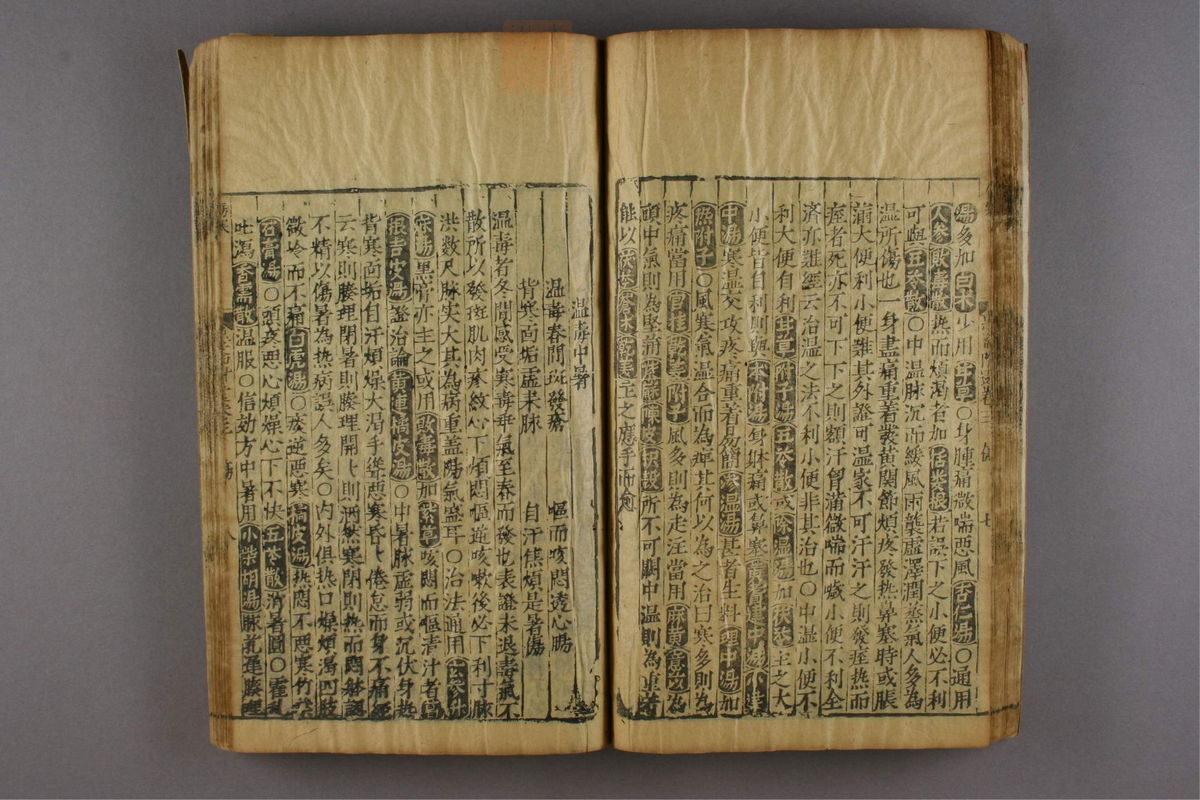 湯多加白术少用甘草○身腫痛微喘惡風杏仁湯○通用
人參敗毒散热而煩渴者加栝蔞根若誤下之小便必不利
可與五苓散○中温脉沉而緩風雨襲虛澤潤蒸氣人多為
温所傷也一身盡痛重着發黄関節煩疼發热鼻塞時或脹
蒲大便利小便難其外證可温家不可汗汗之則發痓热而
痓者死亦不可下下之則額汗胷蒲微喘而噦小便不利全
濟亦難經云治温之法不利小便非其治也○中温小便不
利大便自利甘草附子湯五苓散或除温湯加茯苓主之大
小便皆自利則與术附湯身躰痛或鼻塞黄耆建中湯
中湯寒温交攻疼痛重着勿蘭寒温湯甚者生料理中湯加
熟附子○風寒氣温合而為痺其何以為之治曰寒多則為
疼痛當用官桂乾姜附子風多則為走注當用麻黄薏苡為
頭中氣則為堅蒲枳殼所不可闕中温則為重着
能以茯苓白术乾姜主之應手而愈
温毒中暑
温毒春間斑發瘡 嘔而咳悶透心腸
背寒面垢虛来脉 自汗焦煩是暑傷
温毒者冬間感受寒毒乖氣至春而發也表證未退毒氣不
散所以發斑肌肉疹紋心下煩悶嘔逆咳嗽後必下利寸脉
洪数尺脉实大其為病重盖陽氣盛耳○治法通用玄參升
麻湯黒膏亦主之或用敗毒散加紫草咳悶而嘔清汁者
根吉皮湯證治論黄連橘皮湯○中暑脉虛弱或沉伏身热
背寒面垢自汗煩燥大渴手足惡寒昏〻倦怠而身不痛經
云寒則腠理閉暑則腠理開〻則洒然寒閉則热而悶
不精以傷暑為热病誤人多矣○内外俱热口燥煩渴四肢
微冷而不痛白虎湯○痰逆惡寒橘皮湯热悶不惡寒竹葉
石膏湯○頭疼悪心煩燥心下不快五苓散消暑圓○霍乱
吐瀉香薷散温服○信効方中暑用小柴胡湯脉